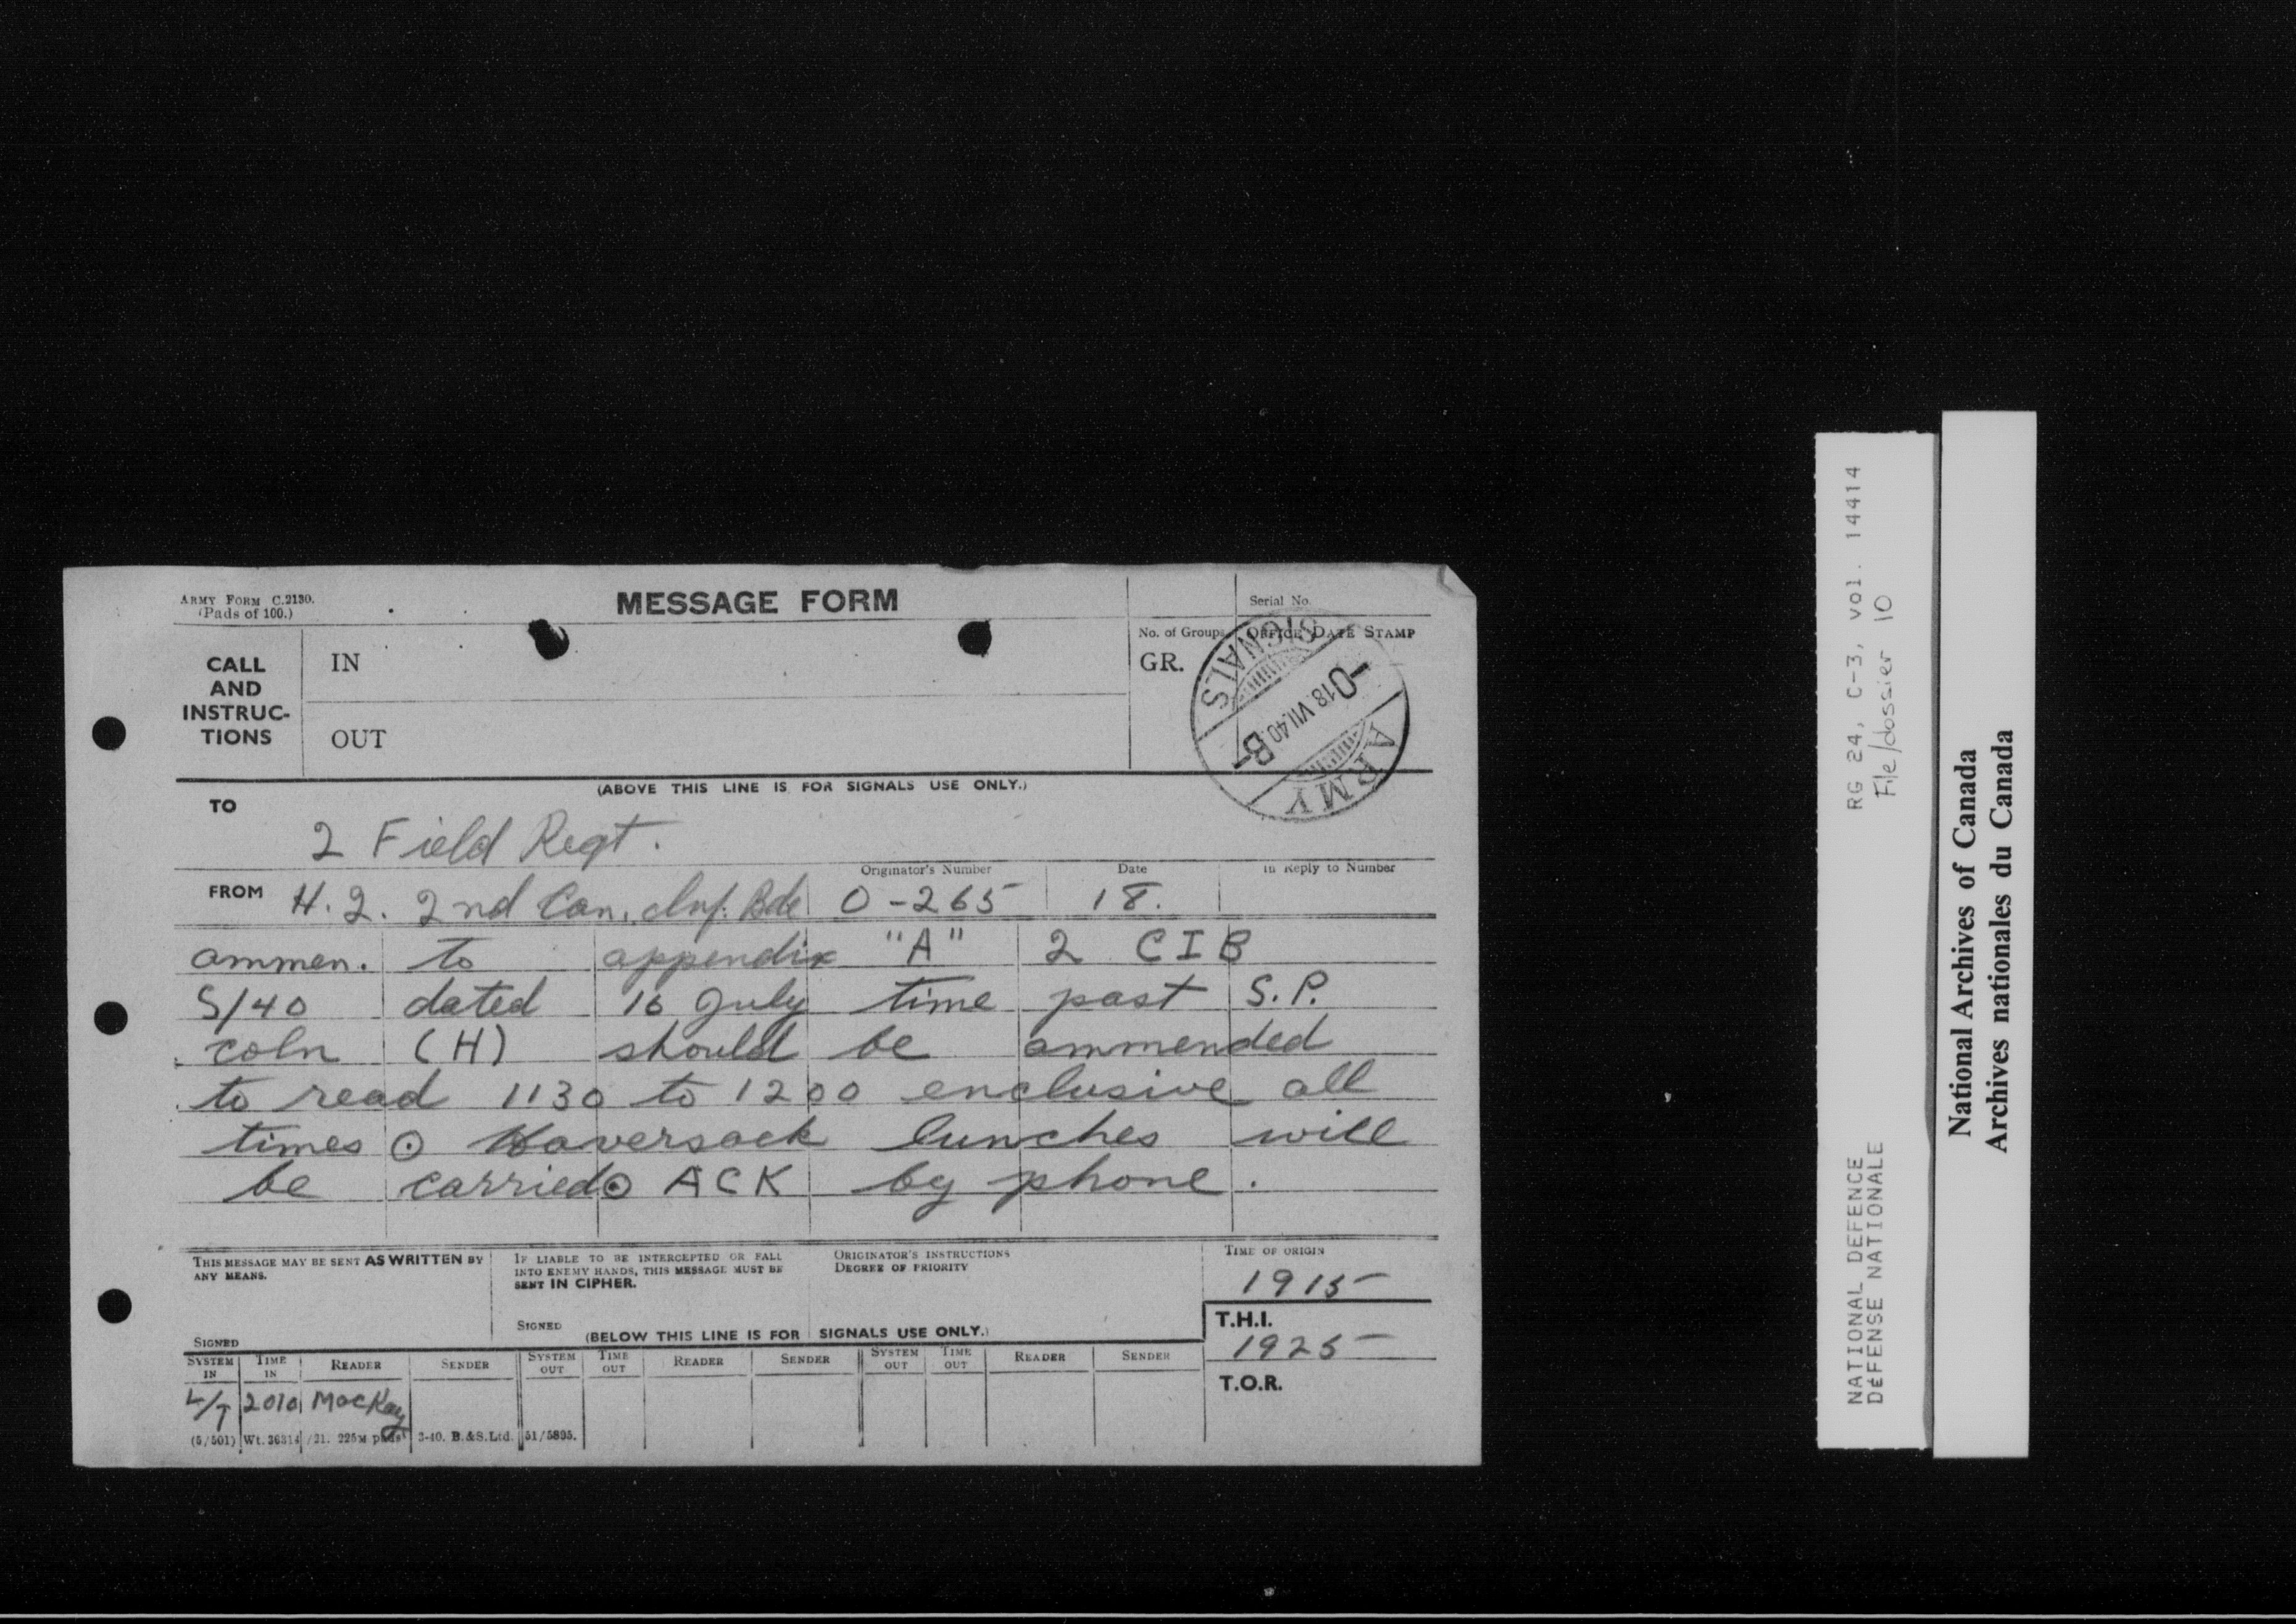 ARMY FORM C.2130.
(Pads of 100.)
MESSAGE FORM
Serial No.
CALL AND INSTRUC-TIONS
IN
OUT
No. of Groups
GR.
OFFICE DATE STAMP
SIGNALS
-O 18.VII.40 B-
ARMY
(ABOVE THIS LINE IS FOR SIGNALS USE ONLY.)
TO
2 Field Regt.
FROM H.Q. 2nd Can. Inf. Bde
Originator's Number
O-265
Date
18.
In Reply to Number
ammen. to appendix "A" 2 CIB
S/40 dated 16 July time past S.P.
coln (H) should be ammended
to read 1130 to 1200 enclusive all
times ⊙ Haversack lunches will
be carried ⊙ ACK by phone.
THIS MESSAGE MAY BE SENT AS WRITTEN BY
ANY MEANS.
SIGNED
IF LIABLE TO BE INTERCEPTED OR FALL
INTO ENEMY HANDS, THIS MESSAGE MUST BE
SENT IN CIPHER.
SIGNED
ORIGINATOR'S INSTRUCTIONS
DEGREE OF PRIORITY
TIME OF ORIGIN
1915
T.H.I.
1925
T.O.R.
(BELOW THIS LINE IS FOR SIGNALS USE ONLY.)
SYSTEM IN TIME IN READER SENDER SYSTEM OUT TIME OUT READER SENDER SYSTEM OUT TIME OUT READER SENDER
L/T 2010 MacKay
(5/501) Wt. 36314/21. 225M pads 3-40. B.&S.Ltd. 51/5895.
RG 24, C-3, vol. 14414
File/dossier 10
NATIONAL DEFENCE
DÉFENSE NATIONALE
National Archives of Canada
Archives nationales du Canada